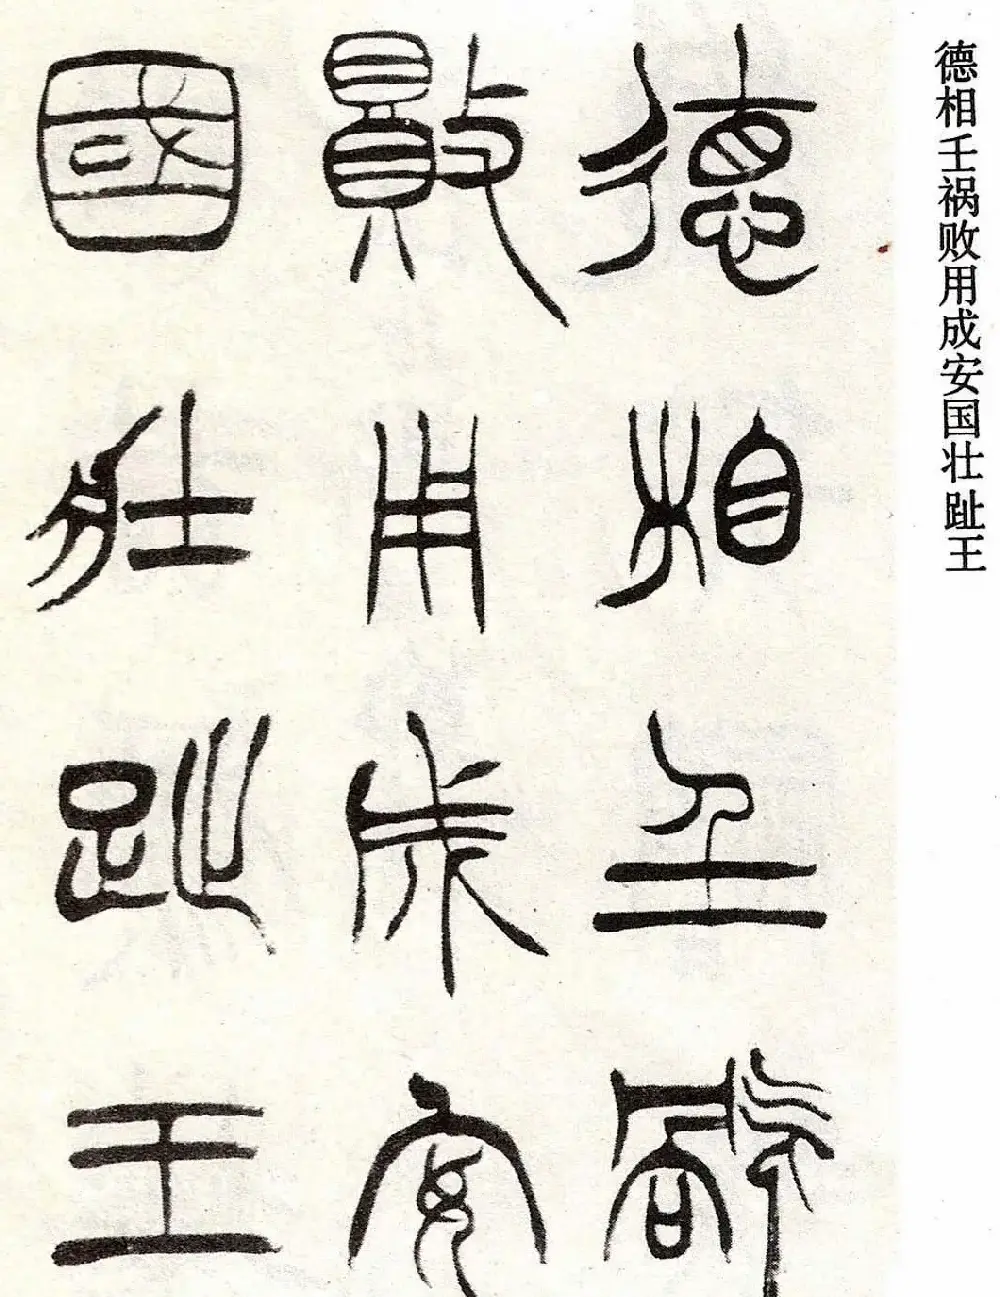 德相壬祸败用成安国壮趾王
德相壬祸
敗用成安
國壯趾王